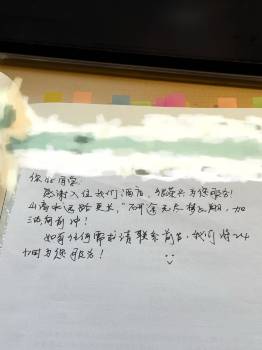 你好同学:
感谢入住我们酒店,很荣兴为您服务!
山高水远路更长,
加
油向前冲!
如有任何需求请联系前台,我们将24
小时为您服务!